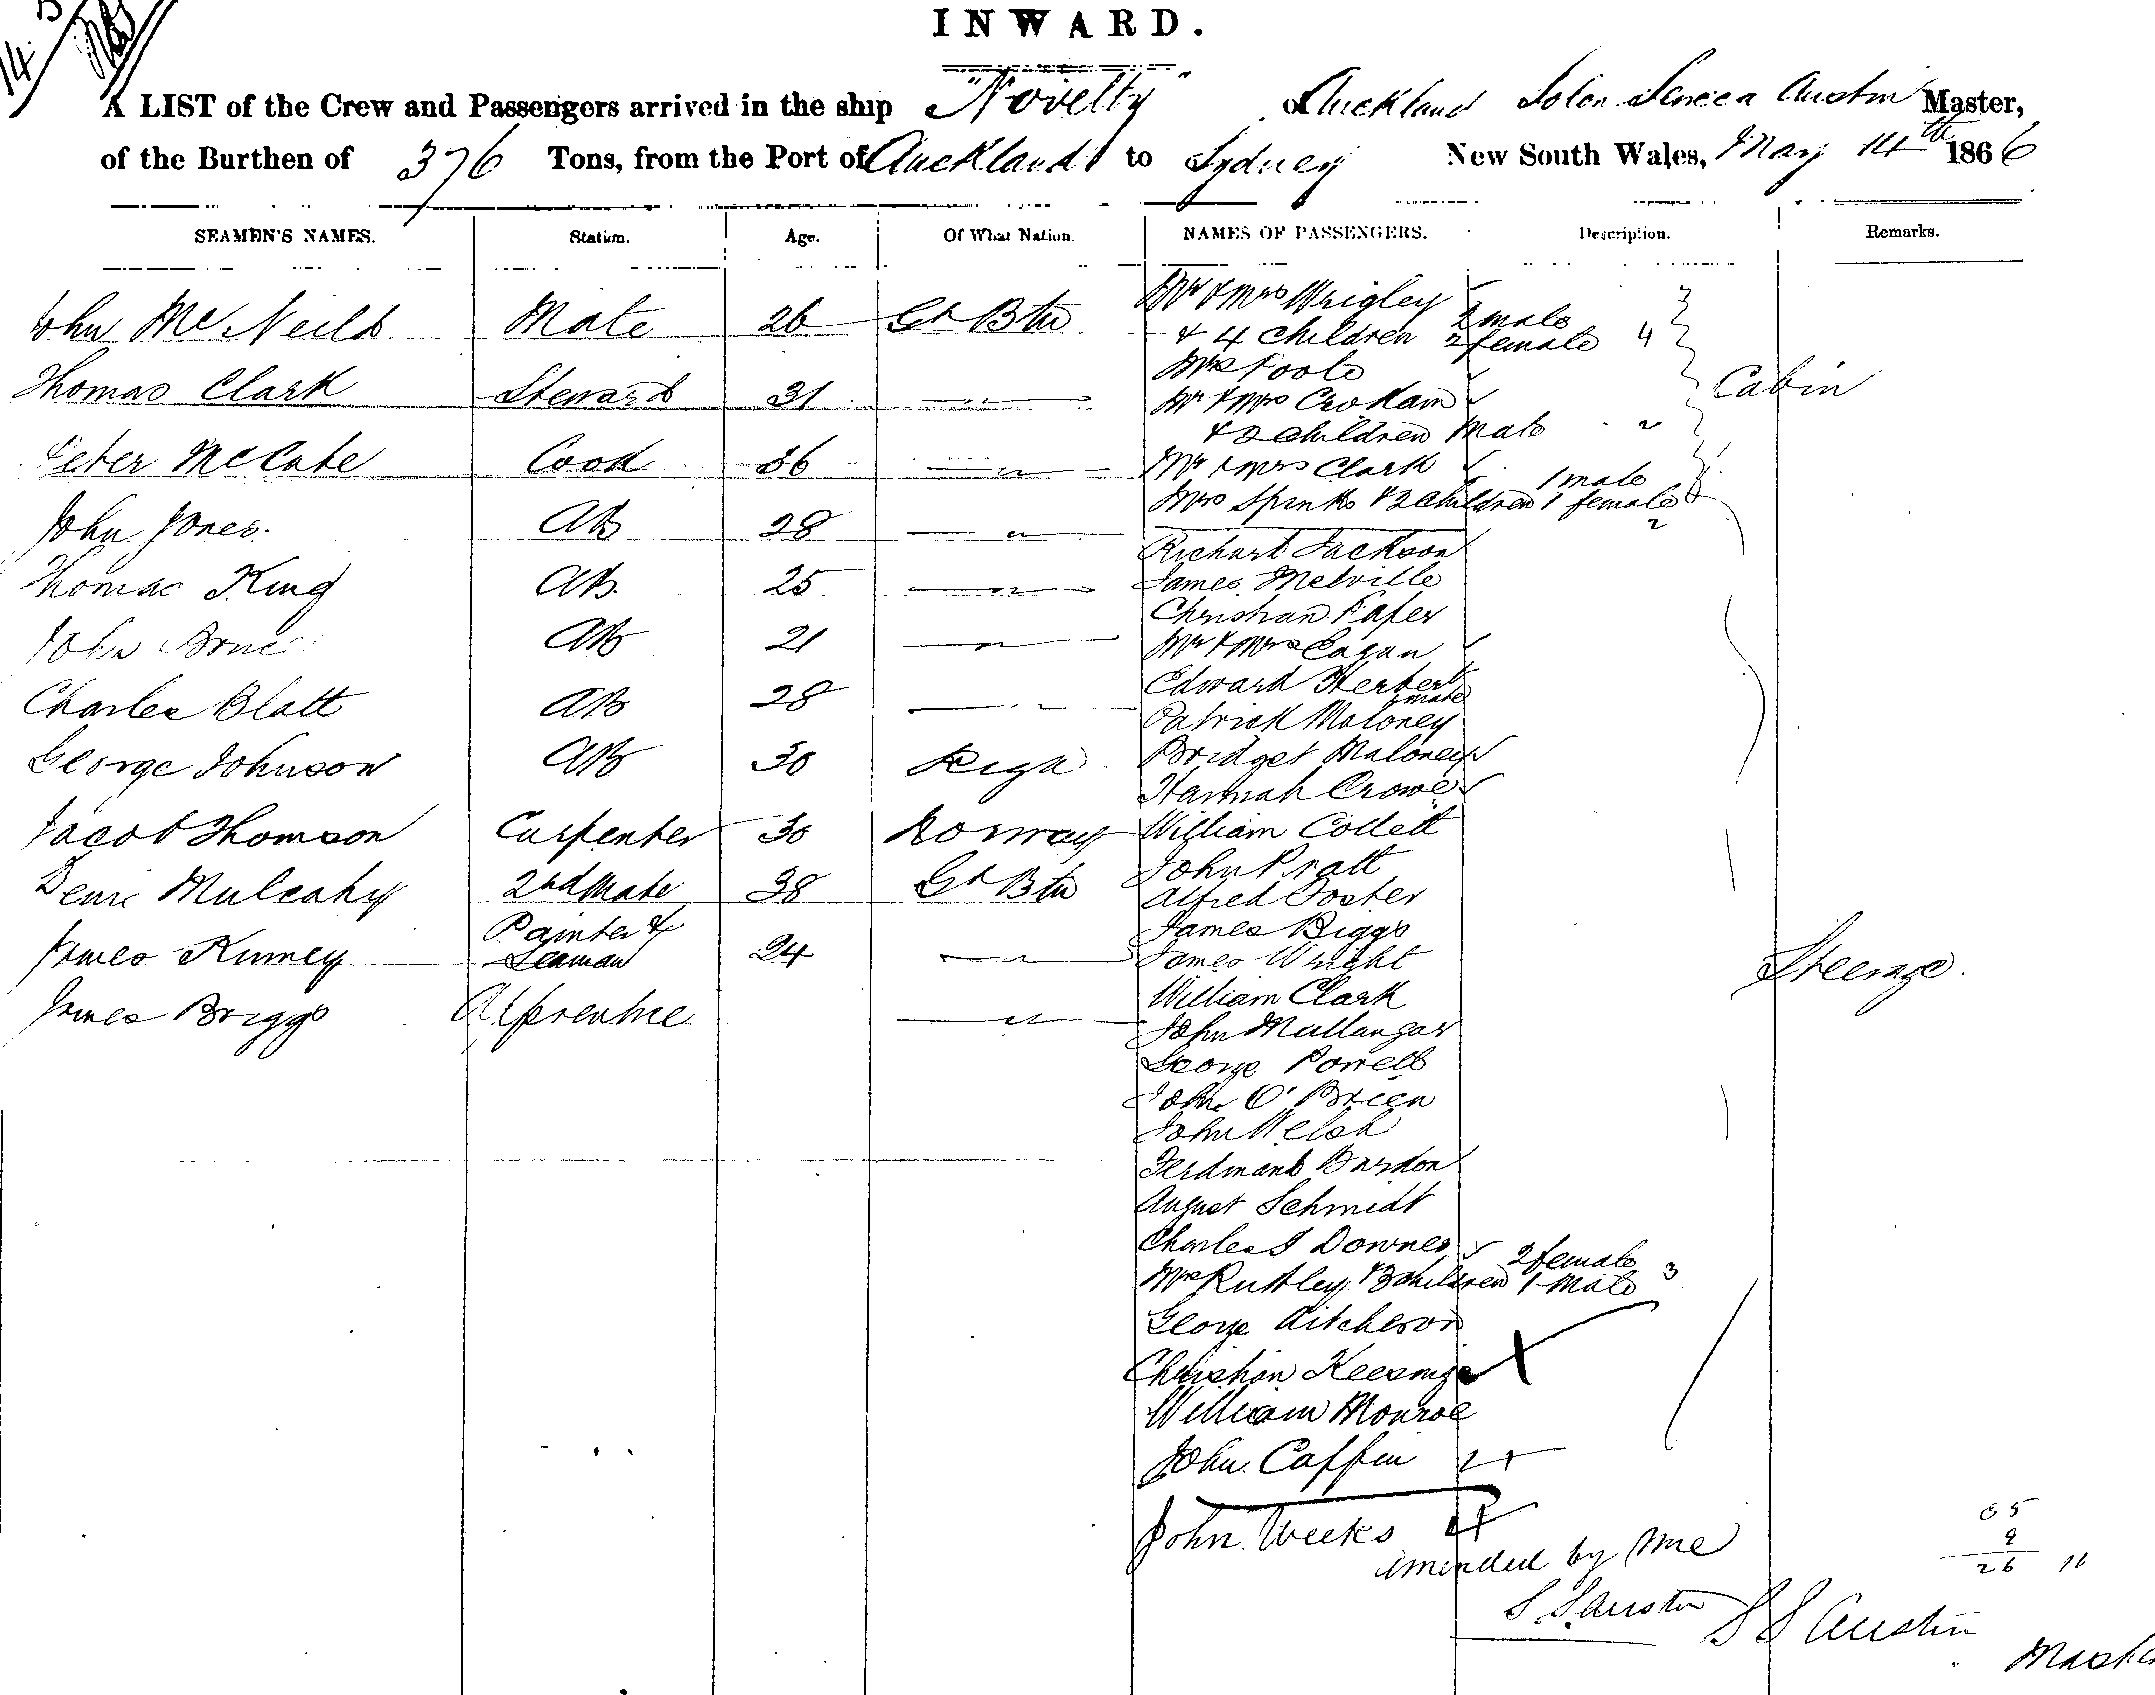 INWARD.
A LIST of the Crew and Passengers arrived in the ship "Novelty" of Auckland Solon Seneca Austin Master,
of the Burthen of 376 Tons, from the Port of Auckland to Sydney New South Wales, May 14th 1866
SEAMEN'S NAMES. Station. Age. Of What Nation. NAMES OF PASSENGERS. Description. Remarks.
John McNeild Mate 26 Gt Btn
Thomas Clark Steward 31 "
Peter McCabe Cook 36 "
John Jones. AB 28 "
Thomas King AB. 25 "
John AB 21 "
Charles Blatt AB 28 "
George Johnson AB 30 Riga
Jacob Thomson Carpenter 30 Norway
Mulcahy 2nd Mate 38 Gt Btn
James Kinney Painter &
Seaman 24 "
James Briggs Apprentice "
Mr & Mrs Wrigley
& 4 Children 2 male
2 female 4
Mrs Foote
Mr & Mrs Crokam
& 2 children Male 2
Mr & Mrs Clark
Mrs Spinks & 2 children 1 male
1 female 2
Cabin
Richard Jackson
James Melville
Christian Fafer
Mr & Mrs Eagan
Edward Herbert
male
Patrick Maloney
Bridget Maloney
Hannah Crowe
William Collett
John Pratt
Alfred Foster
James Biggs
James Wright
William Clark
John Mullangar
George Powell
John O'Brien
John Welsh
Ferdinand Bardon
August Schmidt
Charles S Downes
Mrs Ruttley 3 children 2 female
1 Male 3
George Aitcheson
Christian Keesing
William Monroe
John Caffin
John Weeks
Steerage.
amended by me
S S Austin
S S Austin
Master
65
9
26 16